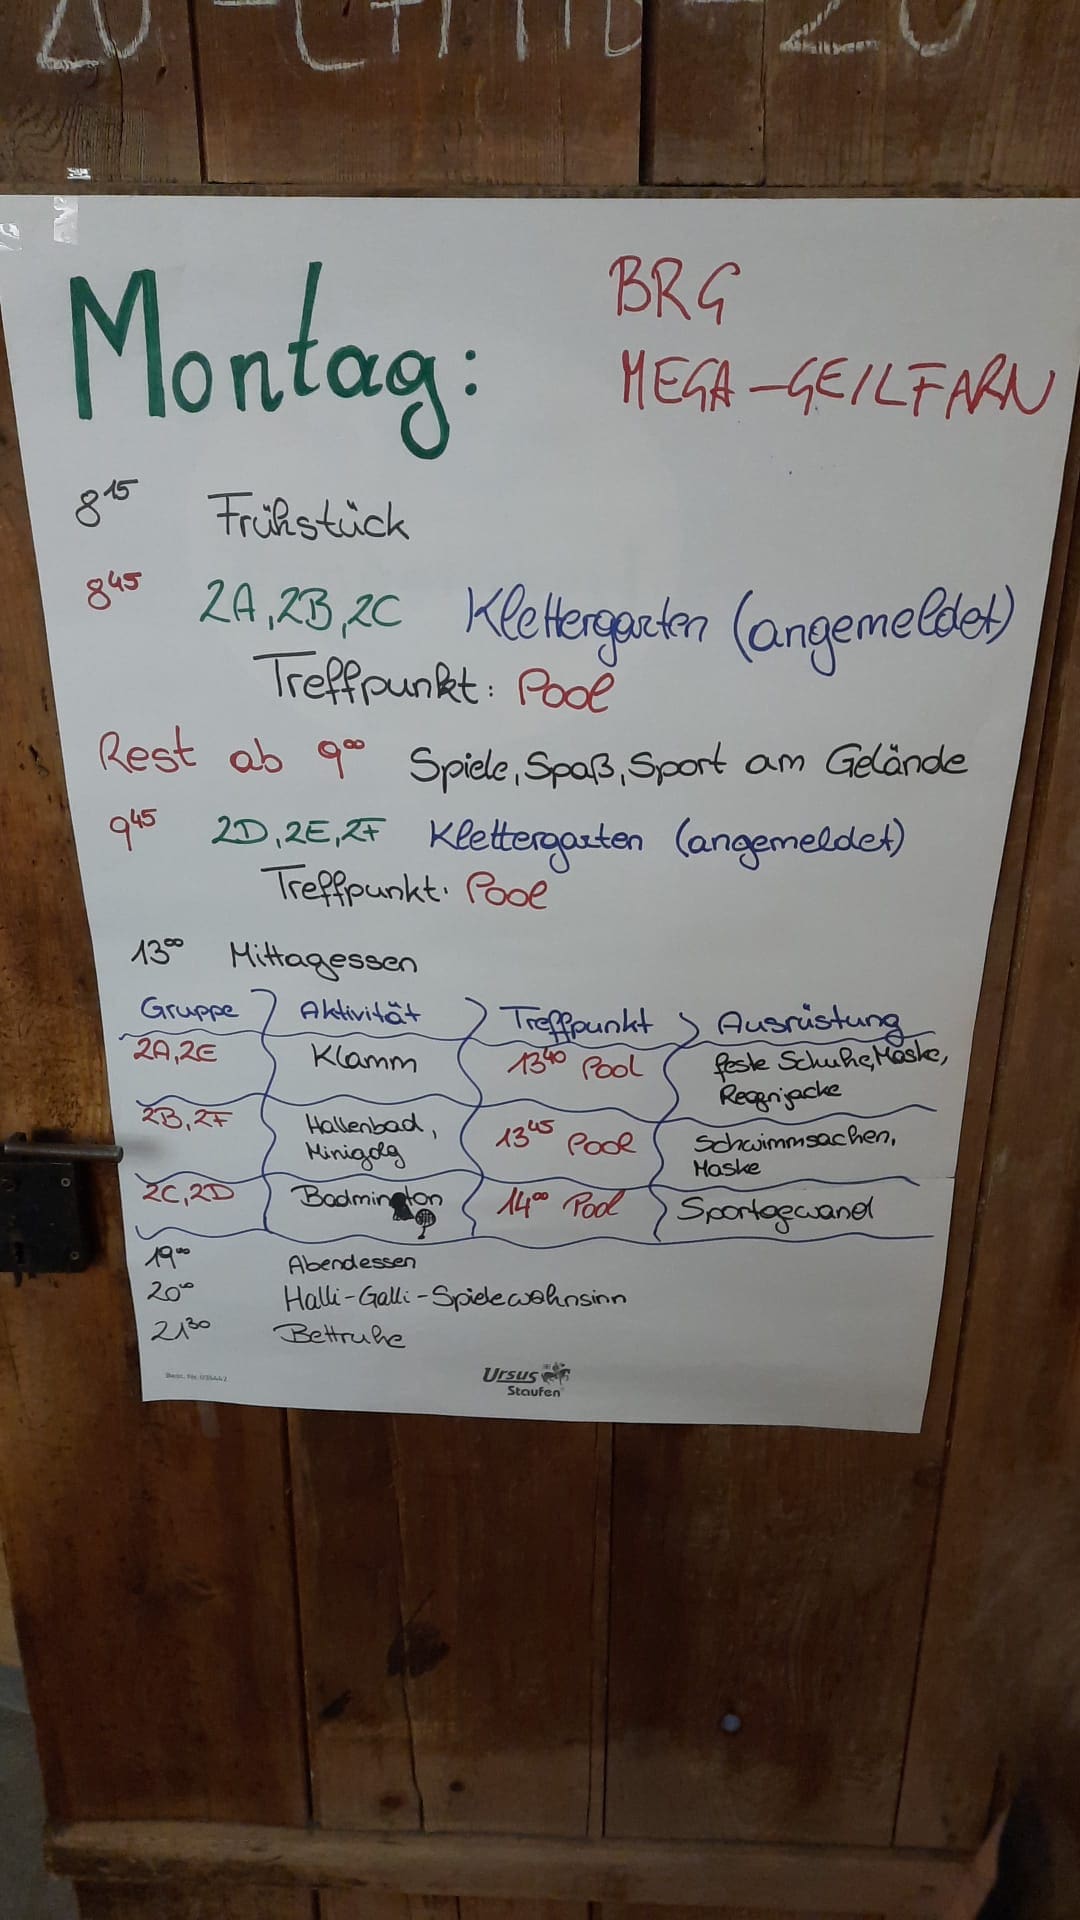 20-C+M+B-20
Montag:
BRG
MEGA-GEILFARN
8¹⁵ Frühstück
8⁴⁵ 2A, 2B, 2C Klettergarten (angemeldet)
Treffpunkt: Pool
Rest ab 9⁰⁰ Spiele, Spaß, Sport am Gelände
9⁴⁵ 2D, 2E, 2F Klettergarten (angemeldet)
Treffpunkt: Pool
13⁰⁰ Mittagessen
Gruppe Aktivität Treffpunkt Ausrüstung
2A, 2E Klamm 13⁴⁰ Pool feste Schuhe, Maske,
Regnjacke
2B, 2F Hallenbad, 13⁴⁵ Pool Schwimmsachen,
Minigolg Maske
2C, 2D Badminton 14⁰⁰ Pool Sportgewand
19⁰⁰ Abendessen
20⁰⁰ Halli-Galli-Spielewahnsinn
21³⁰ Bettruhe
Ursus
Staufen